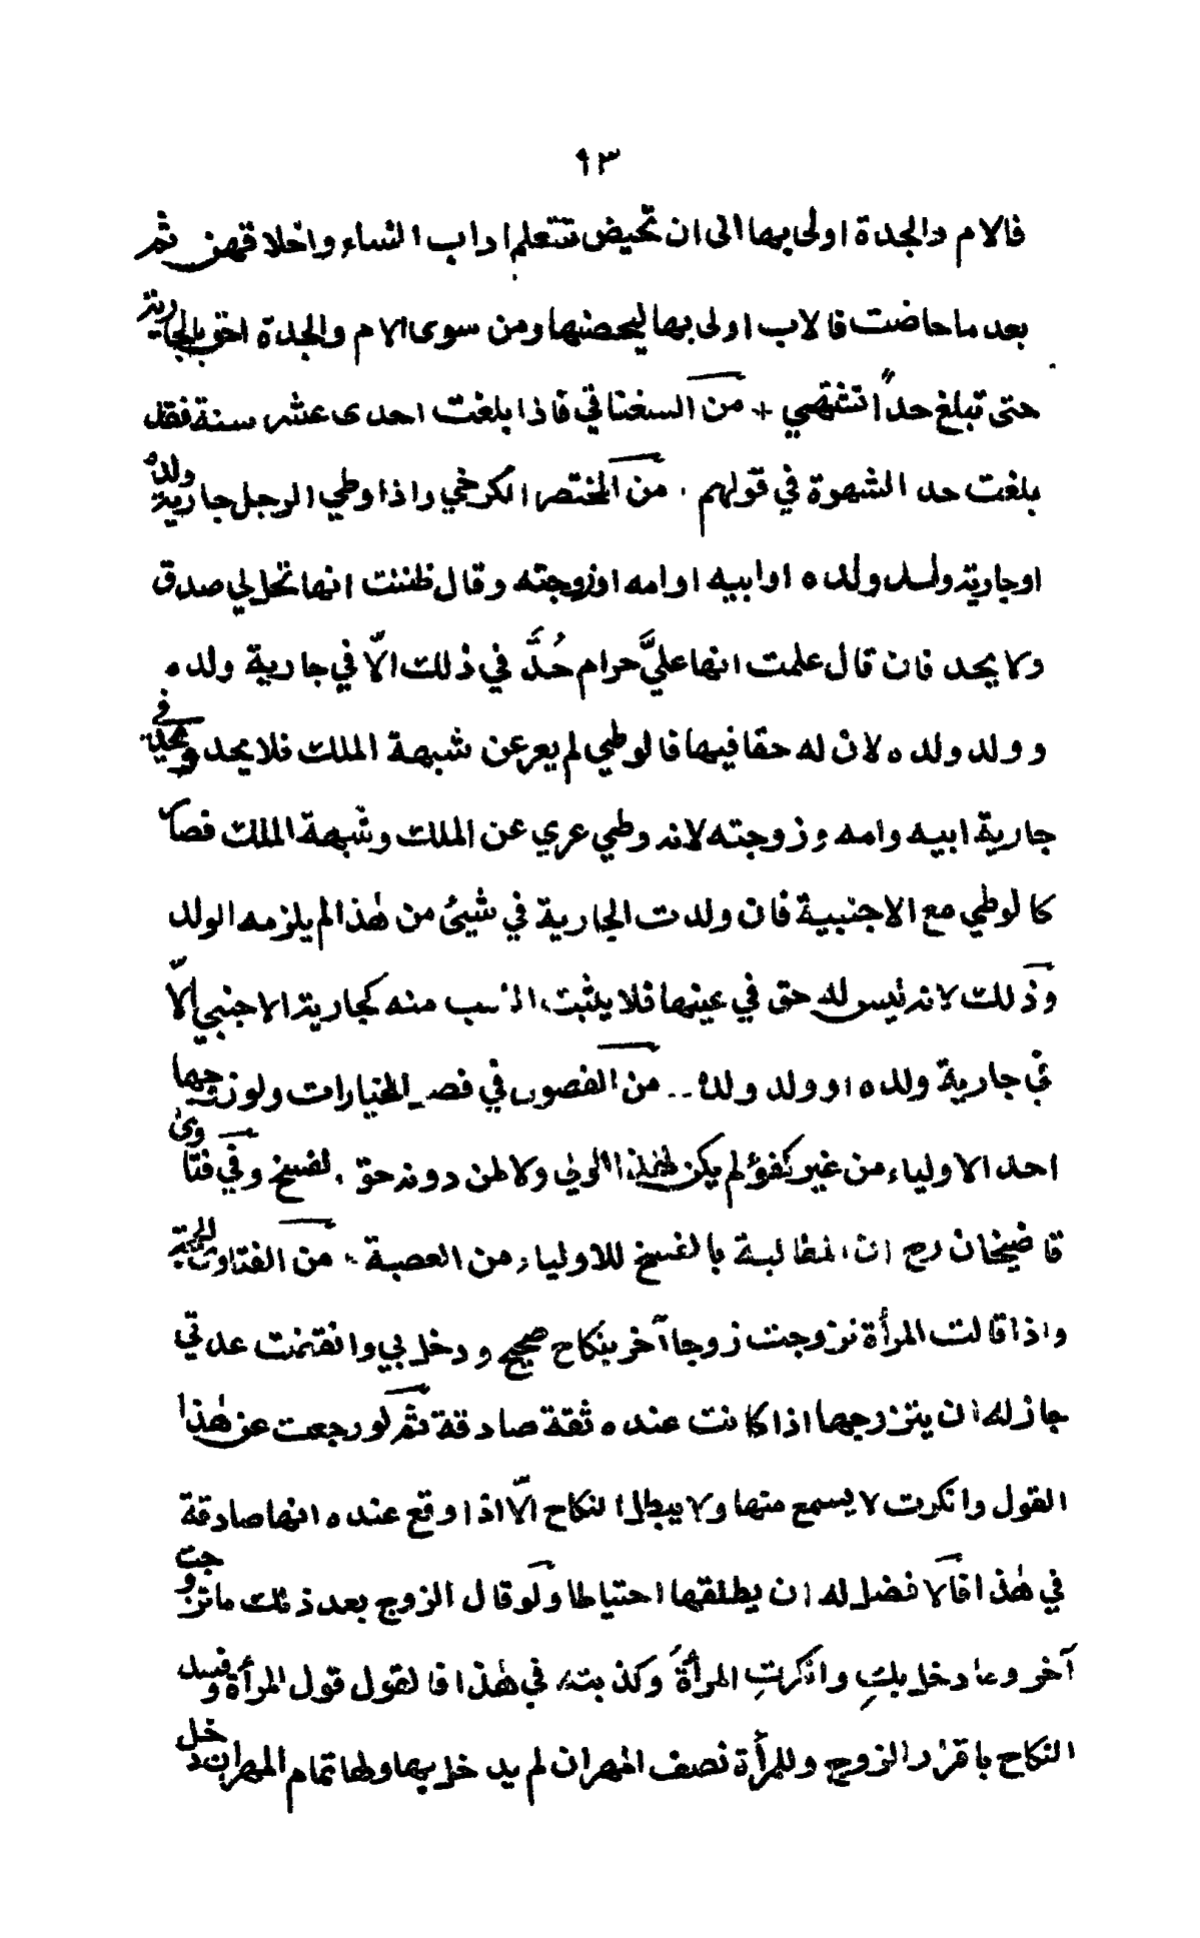 ٩٣
فالام والجدة اولى بها الى ان تحيض تتعلم اداب النساء واخلاقهن ثم
بعد ما حاضت فالاب اولى بها ليحصنها ومن سوى الام والجدة احق بالجارية
حتى تبلغ حداً تشتهي + من السغناقي فاذا بلغت احدى عشر سنة فقد
بلغت حد الشهوة في قولهم . من المختصر الكرخي واذا وطي الرجل جارية ولده
او جارية ولد ولده او ابيه او امه او زوجته وقال ظننت انها تحل لي صدق
ولا يحد فان قال علمت انها عليَّ حرام حُدَّ في ذلك الّا في جارية ولده
وولد ولده لان له حقا فيها فالوطي لم يعر عن شبهة الملك فلا يحد ويحد في
جارية ابيه وامه وزوجته لانه وطي عري عن الملك وشبهة الملك فصار
كالوطي مع الاجنبية فان ولدت الجارية في شيئ من هذا لم يلزمه الولد
وذلك لانه ليس له حق في عينها فلا يثبت النسب منه كجارية الاجنبي الّا
في جارية ولده او ولد ولده .. من الفصول في فصل الخيارات ولو زوجها
احد الاولياء من غير كفؤ لم يكن لهذا الولي ولا لمن دونه حق الفسخ وفي فتاوى
قاضيخان رح ان المطالبة بالفسخ للاولياء من العصبة . من الفتاوى الحجة
واذا قالت المرأة تزوجت زوجا آخر بنكاح صحيح ودخل بي وانقضت عدتي
جاز له ان يتزوجها اذا كانت عنده ثقة صادقة ثم لو رجعت عن هذا
القول وانكرت لا يسمع منها ولا يبطل النكاح الّا اذا وقع عنده انها صادقة
في هذا فالافضل له ان يطلقها احتياطا ولو قال الزوج بعد ذلك ما تزوجت
آخر وما دخل بكِ وانكرتِ المرأةَ وكذبته في هذا فالقول قول المرأة وفسد
النكاح باقرار الزوج وللمرأة نصف المهر ان لم يدخل بها ولها تمام المهر ان دخل